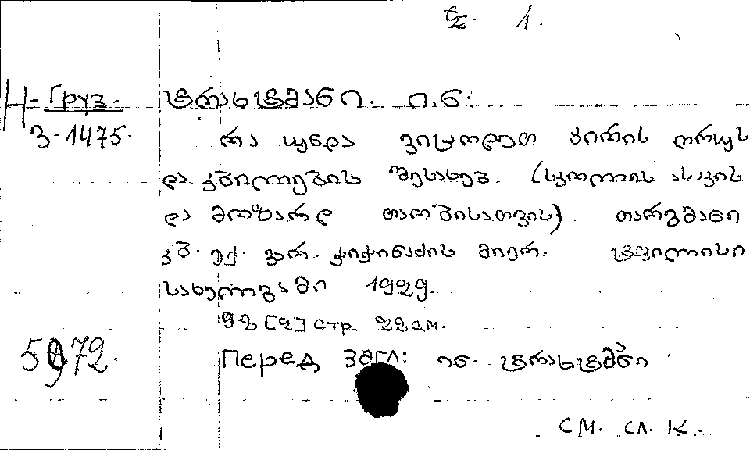 ც. 1.
Н-Груз.
ტრახტმანი. ი.ნ.
3-1475.
რა უნდა ვიცოდეთ პირის ღრუს
და კბილების შესახებ. (სკოლის ასაკის
და მოზარდ თაობისათვის). თარგმანი
კბ. ექ. გრ. ჭიჭინაძის მიერ. ტფილისი
სახელგამი 1929.
стр. 22 см.
5972.
Перед загл: ი.ნ. ტრახტმანი
см. сл. к.